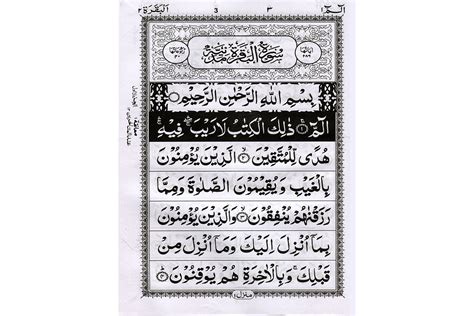 الٓمّٓ ١
٣
3
البقرة ٢
سُوْرَةُ الْبَقَرَةِ مَدَنِيَّةٌ
بِسْمِ اللّٰهِ الرَّحْمٰنِ الرَّحِيْمِ
الٓمّٓ ۚ ذٰلِكَ الْكِتٰبُ لَا رَيْبَ ۛ فِيْهِ ۛ
هُدًى لِّلْمُتَّقِيْنَ ۙ الَّذِيْنَ يُؤْمِنُوْنَ
بِالْغَيْبِ وَيُقِيْمُوْنَ الصَّلٰوةَ وَمِمَّا
رَزَقْنٰهُمْ يُنْفِقُوْنَ ۙ وَالَّذِيْنَ يُؤْمِنُوْنَ
بِمَآ اُنْزِلَ اِلَيْكَ وَمَآ اُنْزِلَ مِنْ
قَبْلِكَ ۚ وَبِالْاٰخِرَةِ هُمْ يُوْقِنُوْنَ
منزل ١